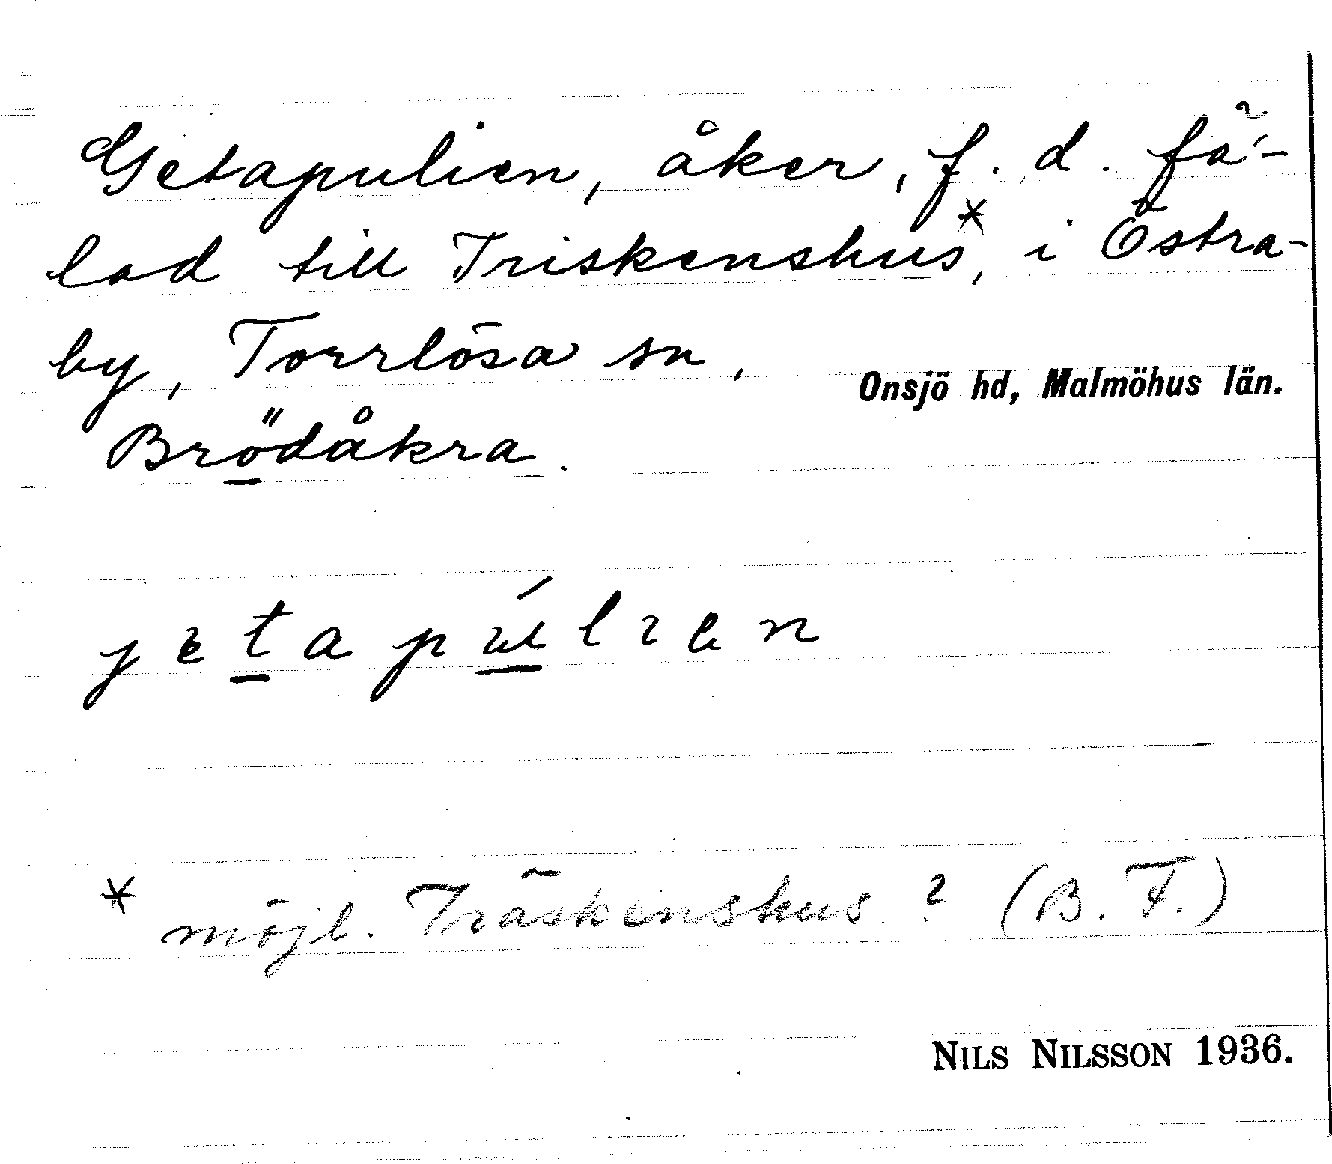 Getapulien, åker, f. d. fä-
lad till Triskenshus*, i Östra-
by, Torrlösa sn,
Onsjö hd, Malmöhus län.
Brödåkra.
jetapúlien
* möjl. Träskenshus? (B. F.)
NILS NILSSON 1936.